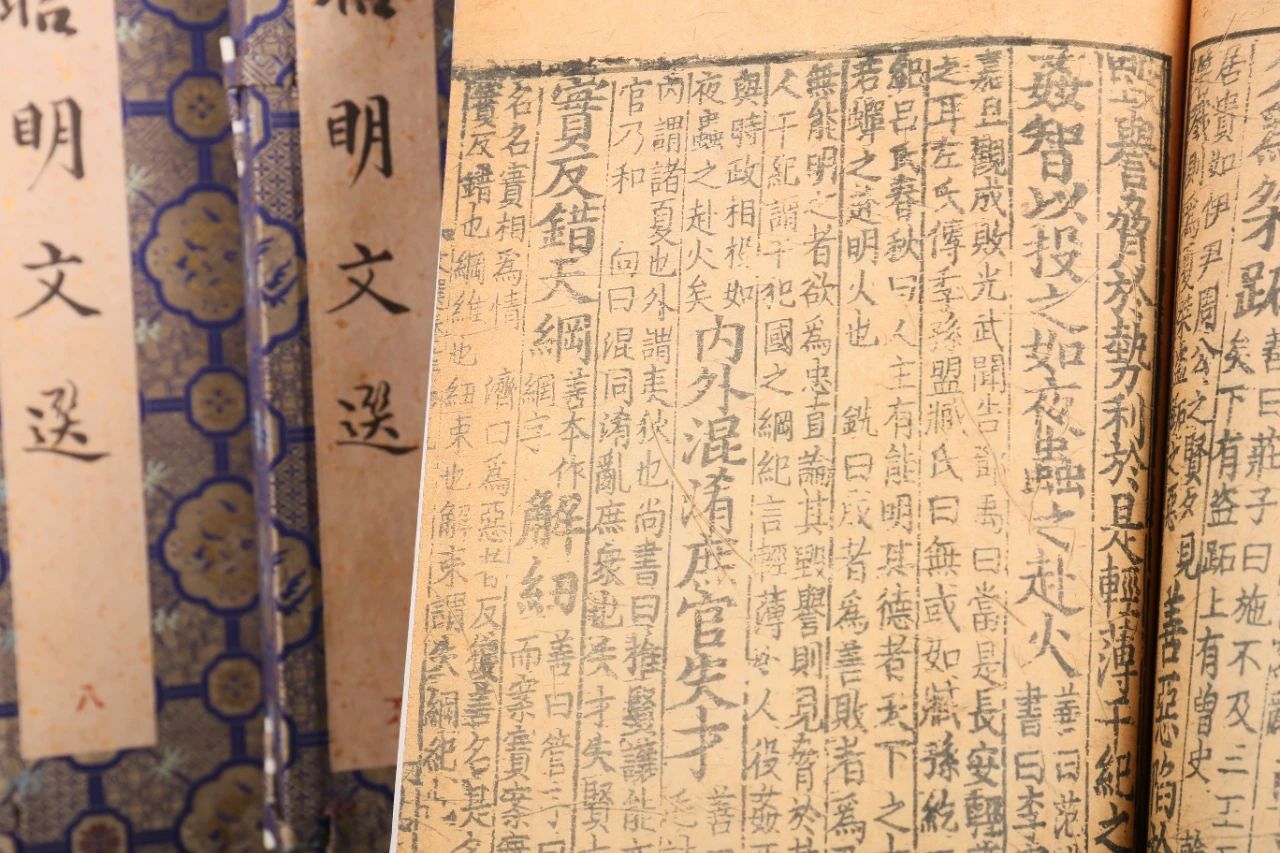 明文選
八
明文選
桀跖
善曰莊子曰施不及三王
矣下有盜跖上有曾史
居貴如伊尹周公之賢
見善惡陷於
毀譽脅於勢利於是輕薄干紀之
姦智以投之如夜蟲之赴火
善曰范
書曰李
嘉且觀成敗光武聞告鄧禹曰當是長安輕
之耳左氏傳季孫盟臧氏曰無或如臧孫紇
紀呂氏春秋曰人主有能明其德者天下之士
若蟬之赴明火也 銑曰成者為善敗者為
無能明之者欲為忠直論其毀譽則見脅於
人干紀謂干犯國之綱紀言輕薄之人役姦
與時政相投如
夜蟲之赴火矣
內外混淆庶官失才
善
內謂諸夏也外謂夷狄也尚書曰推賢讓能
官乃和 向曰混同淆亂庶衆也失才失賢
實反錯天綱
善本作
網字
解紐
善曰管子曰
而案實案實
名名實相為情 濟曰為惡者反獲善名是名
實反錯也綱維也紐束也解束謂失綱紀